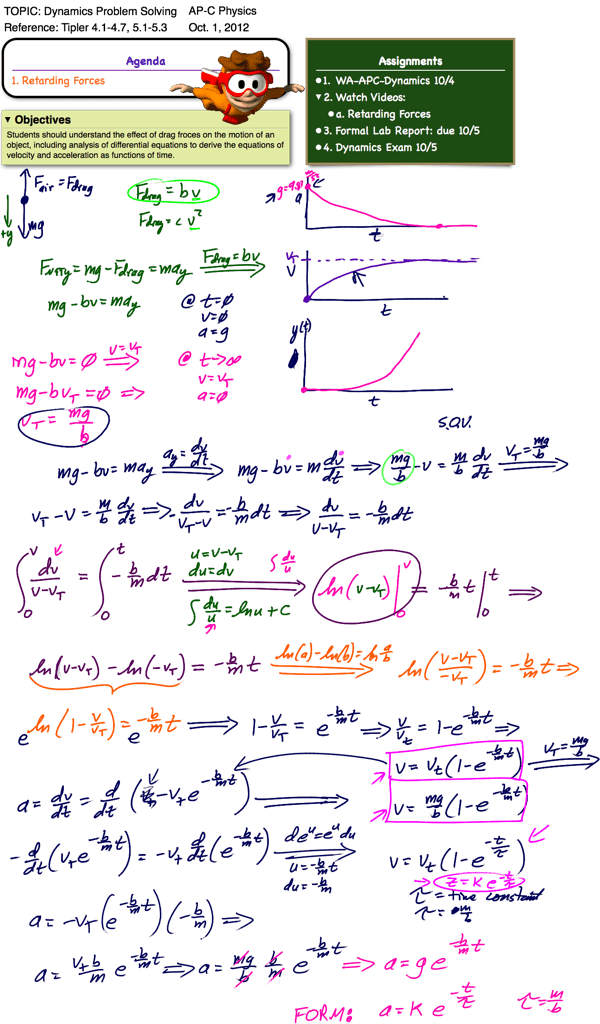 TOPIC: Dynamics Problem Solving AP-C Physics
Reference: Tipler 4.1-4.7, 5.1-5.3 Oct. 1, 2012
Agenda
1. Retarding Forces
Assignments
1. WA-APC-Dynamics 10/4
2. Watch Videos:
a. Retarding Forces
3. Formal Lab Report: due 10/5
4. Dynamics Exam 10/5
Objectives
Students should understand the effect of drag froces on the motion of an
object, including analysis of differential equations to derive the equations of
velocity and acceleration as functions of time.
F_air = F_drag
+y
mg
F_drag = bv
F_drag = cv²
a
t
F_netty = mg - F_drag = ma_y F_drag = bv ⟹
v_T
v
t
mg - bv = ma_y
@ t=∅
v=∅
a=g
y(t)
t
mg - bv = ∅ v=v_T ⟹
mg - bv_T = ∅ ⟹
@ t→∞
v=v_T
a=∅
v_T = mg/b
S.O.V.
mg - bv = ma_y a_y = dv/dt ⟹ mg - bv = m dv/dt ⟹ mg/b - v = m/b dv/dt v_T = mg/b ⟹
v_T - v = m/b dv/dt ⟹ -dv/(v_T - v) = -b/m dt ⟹ dv/(v - v_T) = -b/m dt
∫₀^v dv/(v - v_T) = ∫₀^t -b/m dt u = v - v_T du = dv ∫ du/u ⟹ ln(v - v_T)|₀^v = -b/m t|₀^t ⟹
∫ du/u = ln u + c
ln(v - v_T) - ln(-v_T) = -b/m t ln(a) - ln(b) = ln a/b ⟹ ln((v - v_T)/-v_T) = -b/m t ⟹
e^ln(1 - v/v_T) = e^(-b/m t) ⟹ 1 - v/v_T = e^(-b/m t) ⟹ v/v_t = 1 - e^(-b/m t) ⟹
v = v_t(1 - e^(-b/m t)) v_T = mg/b ⟹
v = mg/b (1 - e^(-b/m t))
a = dv/dt = d/dt (v_t - v_t e^(-b/m t)) ⟹
-d/dt(v_t e^(-b/m t)) = -v_t d/dt(e^(-b/m t)) de^u = e^u du ⟹
u = -b/m t
du = -b/m
v = v_t(1 - e^(-t/τ))
z = K e^(-t/τ)
τ = time constant
τ = m/b
a = -v_T (e^(-b/m t))(-b/m) ⟹
a = v_t b/m e^(-b/m t) ⟹ a = mg/b b/m e^(-b/m t) ⟹ a = g e^(-b/m t)
FORM: a = K e^(-t/τ) τ = m/b